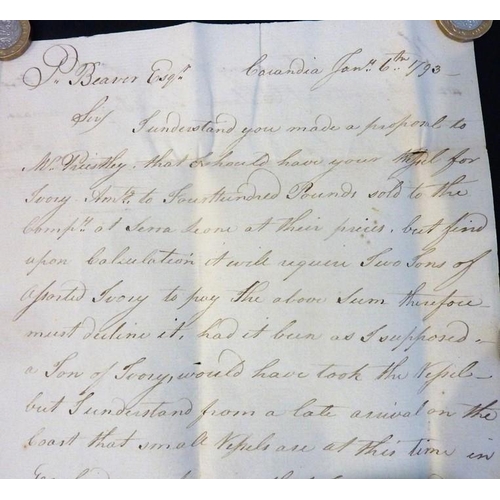 P. Beaver Esqr. Cavandia Jany. 6th 1793
Sir I understand you made a proposal to
Mr. Priestley that I should have your Vessel for
Ivory Amtg. to Four Hundred Pounds sold to the
Compy. at Serra Leone at their prices, but find
upon Calculation it will require Two Tons of
assorted Ivory to pay the above Sum therefore
must decline it, had it been as I supposed
a Ton of Ivory, would have took the Vessel
but I understand from a late arrival on the
Coast that small Vessels are at this time in